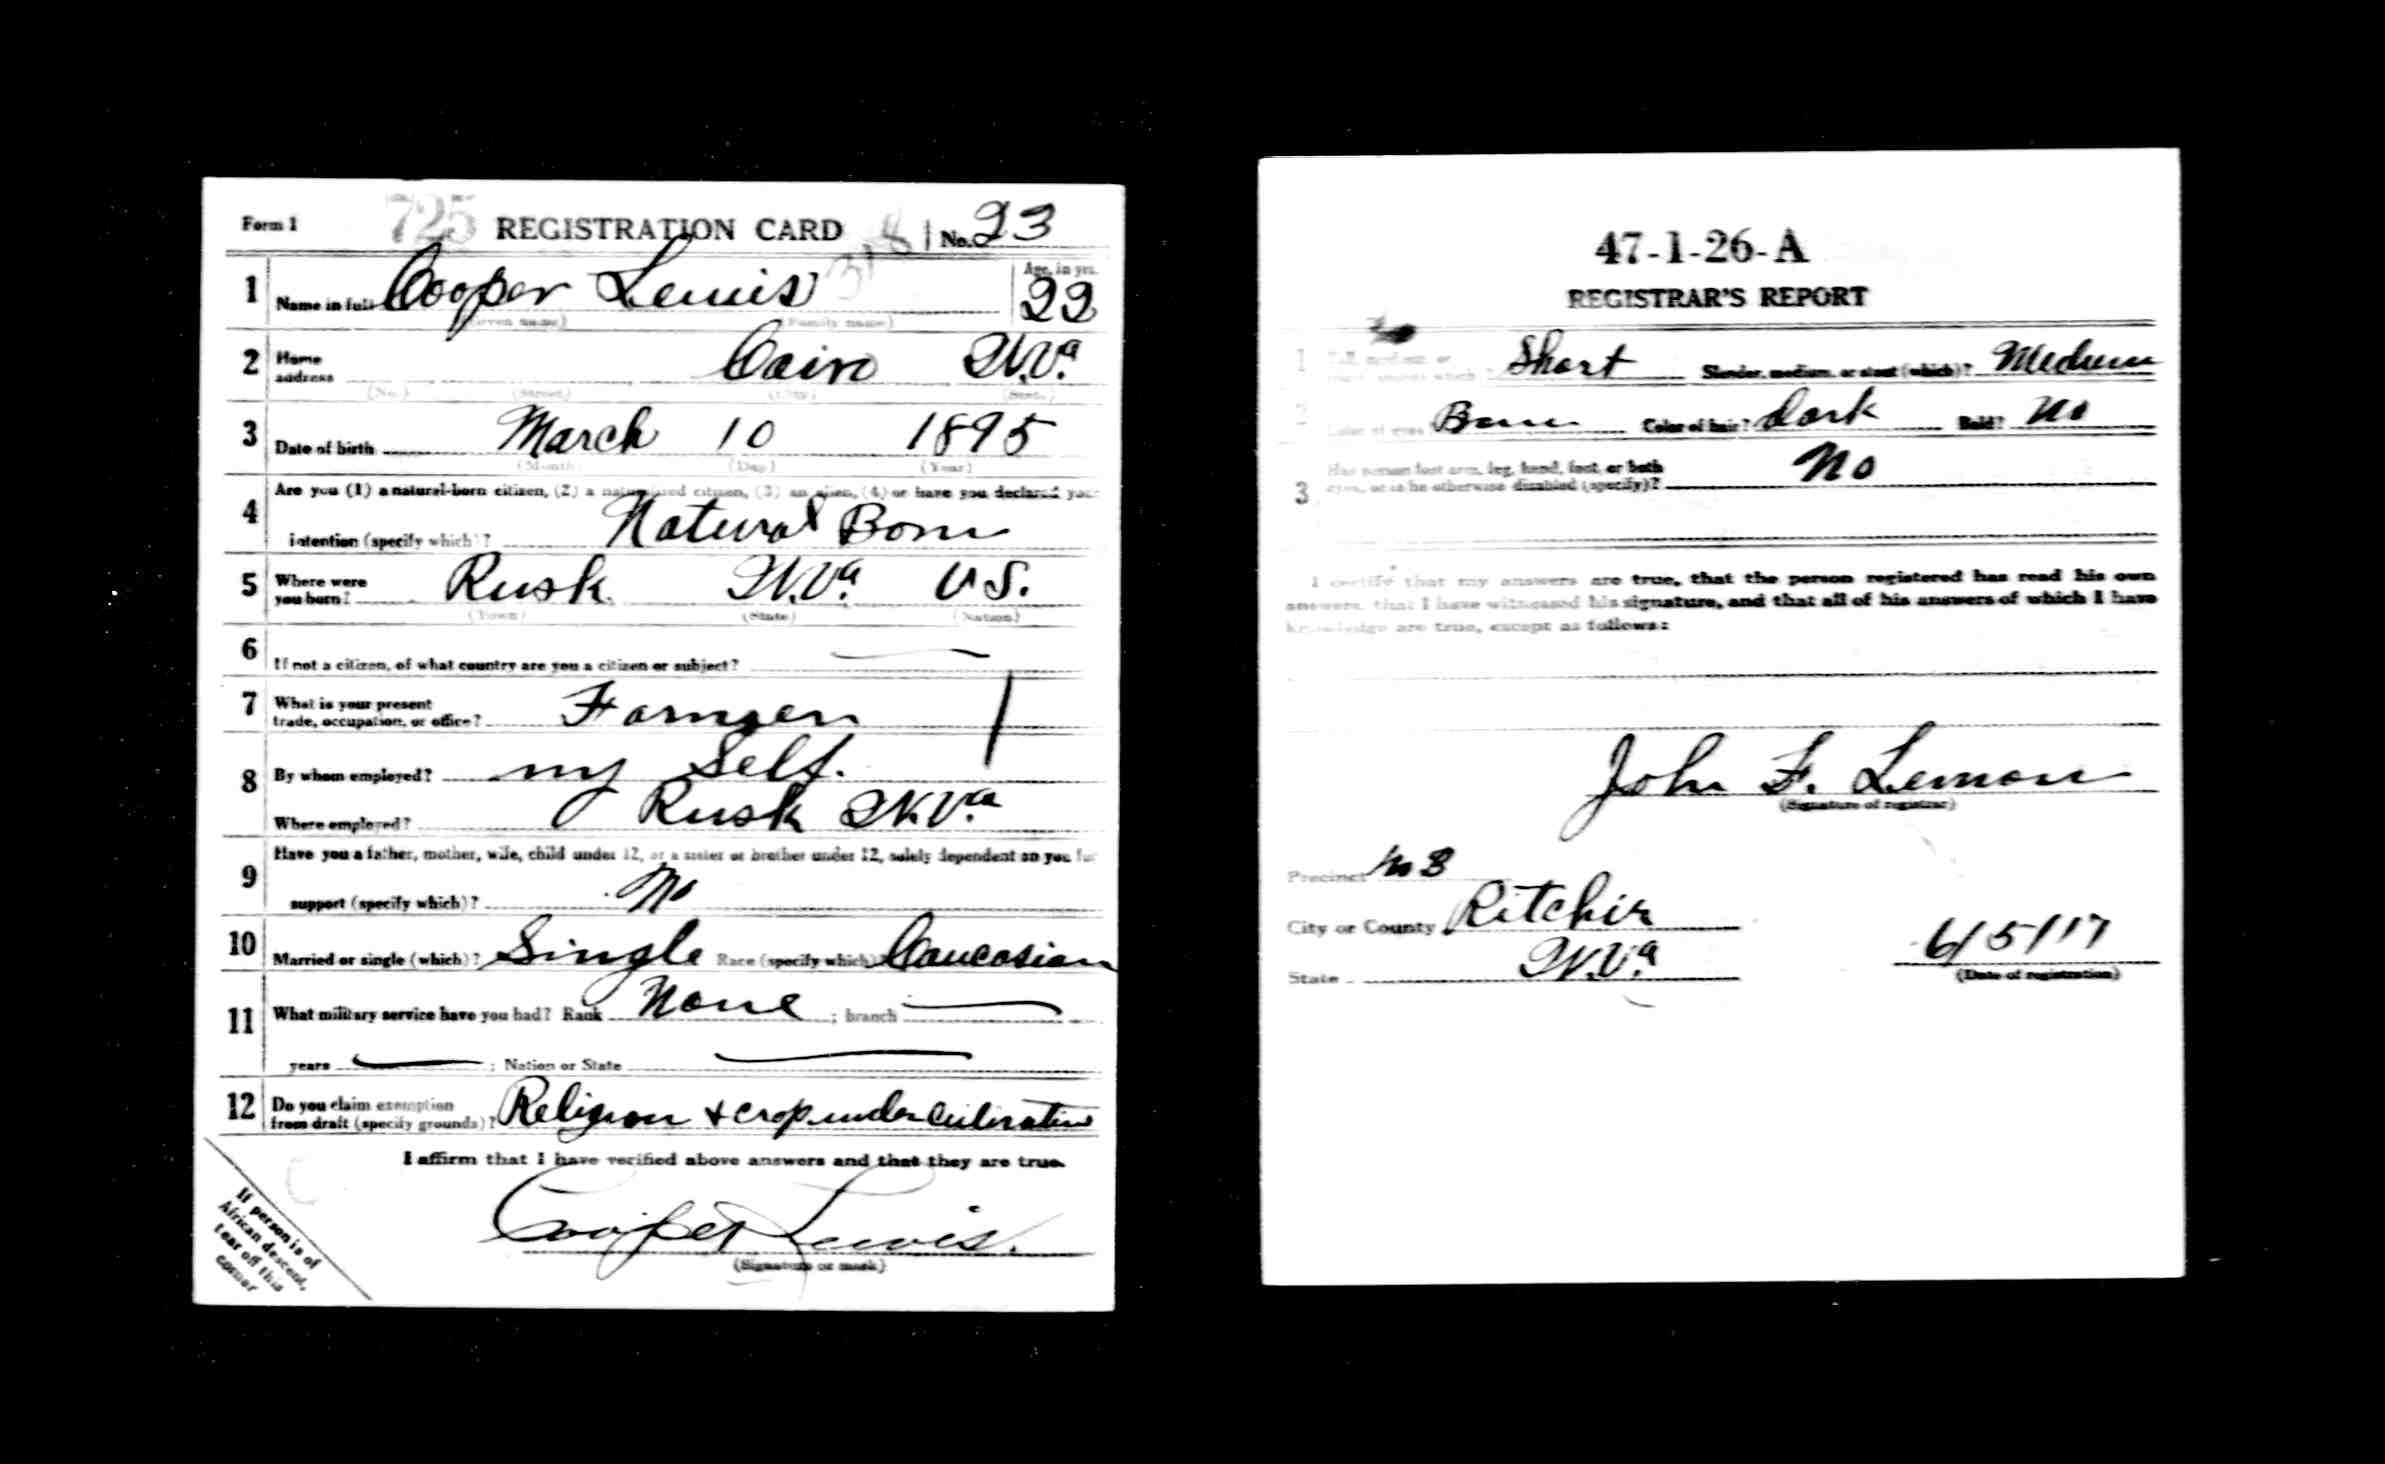 Form 1 725 REGISTRATION CARD 318 No. 23
1 Name in full Cooper Lewis Age, in yrs. 22
(Given name) (Family name)
2 Home address Cairo W.Va.
(No.) (Street) (City) (State)
3 Date of birth March 10 1895
(Month) (Day) (Year)
Are you (1) a natural-born citizen, (2) a naturalized citizen, (3) an alien, (4) or have you declared your
4 intention (specify which)? Natural Born
5 Where were you born? Rusk W.Va. U.S.
(Town) (State) (Nation)
6 If not a citizen, of what country are you a citizen or subject?
7 What is your present trade, occupation, or office? Farmer
8 By whom employed? my Self.
Where employed? Rusk W.Va
Have you a father, mother, wife, child under 12, or a sister or brother under 12, solely dependent on you for
9 support (specify which)? No
10 Married or single (which)? Single Race (specify which)? Caucasian
11 What military service have you had? Rank None ; branch
years ; Nation or State
12 Do you claim exemption from draft (specify grounds)? Religion + crop under Cultivation
I affirm that I have verified above answers and that they are true.
Cooper Lewis.
(Signature or mark)
If person is of
African descent,
tear off this
corner
47-1-26-A
REGISTRAR'S REPORT
1 Short Slender, medium, or stout (which)? Medium
2 Color of eyes Color of hair? dark Bald? No
Has person lost arm, leg, hand, foot, or both
3 eyes, or is he otherwise disabled (specify)? No
I certify that my answers are true, that the person registered has read his own
answers, that I have witnessed his signature, and that all of his answers of which I have
knowledge are true, except as follows:
John F. Lemon
(Signature of registrar)
Precinct No 3
City or County Ritchie
State W.Va. 6/5/17
(Date of registration)